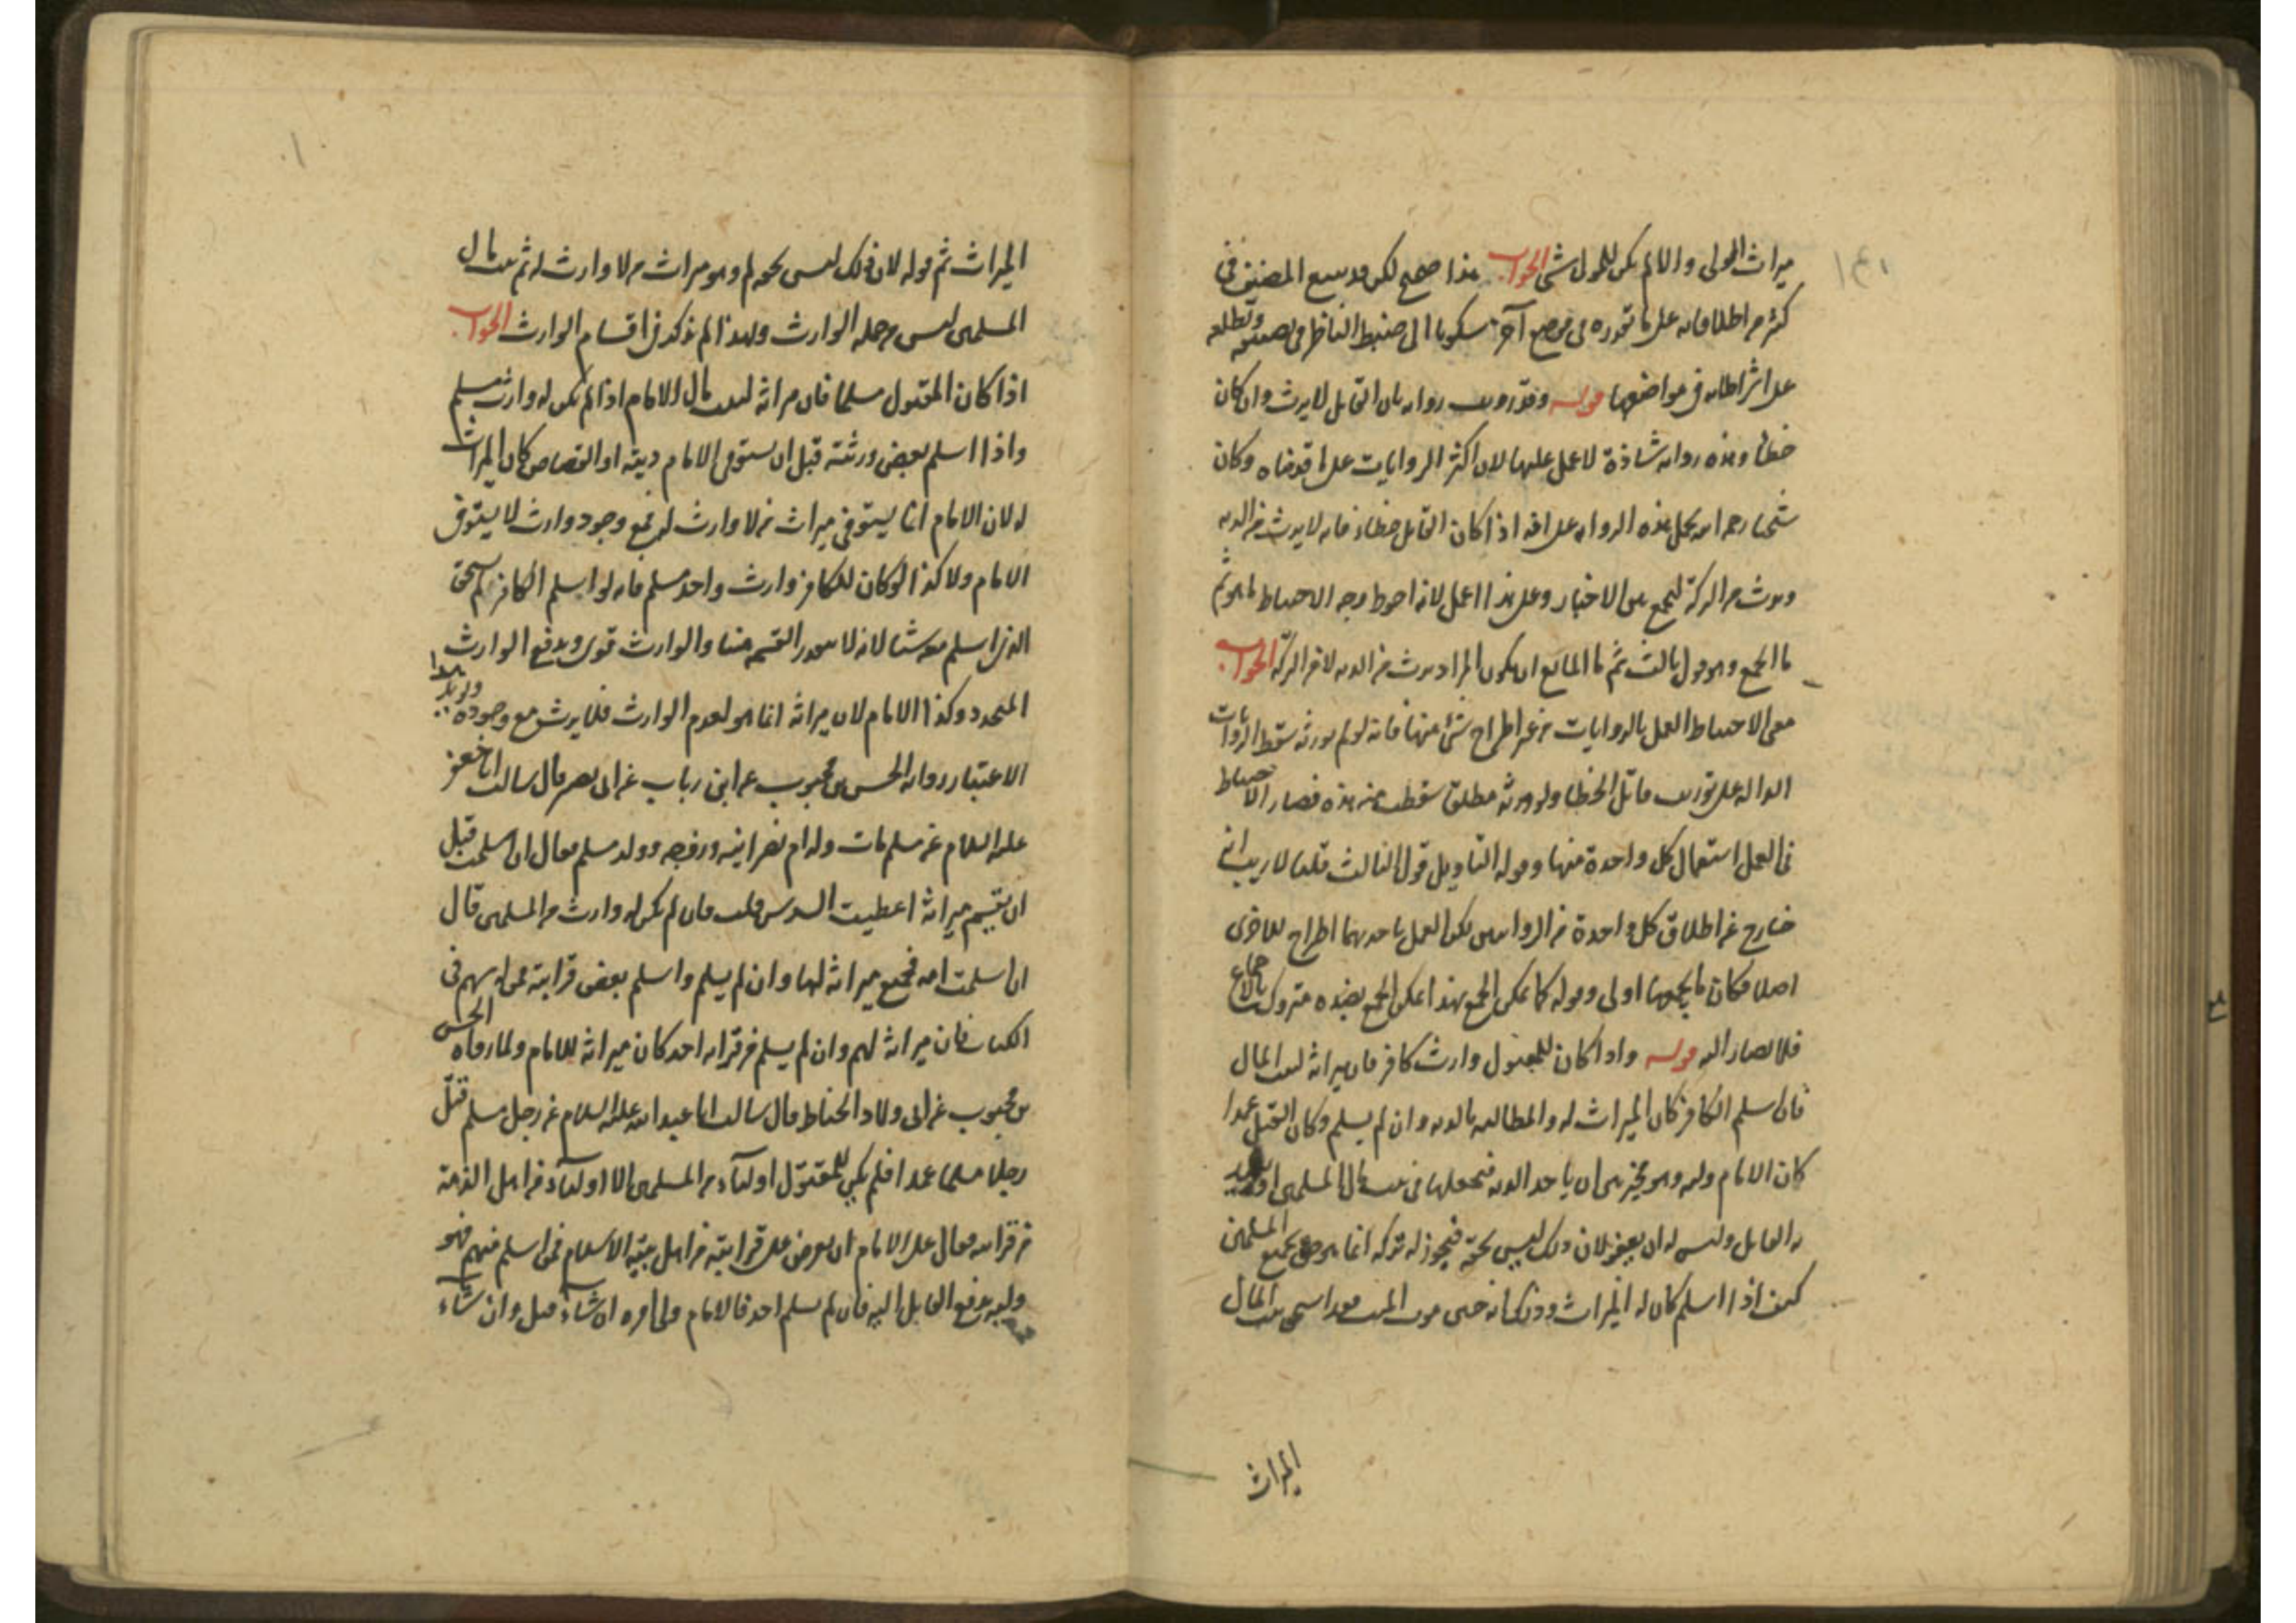 ميراث المولى والا لم يكن للمولى شئ الجواب هذا صحيح لكن قد يسع المصنف في
كثير من اطلاقاته على ما تقرره في موضع آخر سكونا الى ضبط الناظر في تصنيفه وتطلعه
على اشتراطاته في مواضعها قوله وقد رويت رواية بان القاتل لا يرث وان كان
خطأ وهذه رواية شاذة لا عمل عليها لان اكثر الروايات على ما قدمناه وكان
شيخنا رحمه الله يحمل هذه الرواية على انه اذا كان القاتل خطاء فانه لا يرث من الدية
ويرث من التركة ليجمع بين الاخبار وعلى هذا اعمل لانه احوط وجه الاحتياط ما هو ثم
ما الجمع وهو قول ثالث ثم ما المانع ان يكون المراد يرث من الدية لا من التركة الجواب
معنى الاحتياط العمل بالروايات من غير اطراح شئ منها فانه لو لم يورثه سقط الروايات
الدالة على توريث قاتل الخطا ولو ورثه مطلقا سقطت منه هذه فصار الاحتياط
في العمل استعمال كل واحدة منها وقوله التاويل قول ثالث قلنا لا ريب انه
خارج عن اطلاق كل واحدة من الروايتين لكن العمل باحديهما اطراح للاخرى
اصلا فكان ما يجمعهما اولى وقوله كما يمكن الجمع بهذا يمكن الجمع بضده متروك بالاجماع
فلا يصار اليه قوله واذا كان للمقتول وارث كافر فان ميراثه لبيت المال
فان اسلم الكافر كان الميراث له والمطالبة بالدية وان لم يسلم وكان القتل عمدا
كان الامام وليه وهو مخير بين ان ياخذ الدية فيجعلها في بيت مال المسلمين او يقيد
به القاتل وليس له ان يعفو لان ذلك ليس بحقه فيجوز له تركه انما هو حق لجميع المسلمين
كيف اذا اسلم كان له الميراث وذلك انه حين موت الميت قد استحق بيت المال
الميراث
الميراث ثم قوله لان ذلك ليس بحق له وهو ميراث من لا وارث له ثم بيت مال
المسلمين ليس من جملة الوارث ولهذا لم يذكر في اقسام الوارث الجواب
اذا كان المقتول مسلما فان ميراثه لبيت مال الامام اذا لم يكن له وارث مسلم
واذا اسلم بعض ورثته قبل ان يستوفي الامام ديته او القصاص كان الميراث
له لان الامام انما يستوفي ميراث من لا وارث له فمع وجود وارث لا يستوفى
الامام ولا كذا لو كان للكافر وارث واحد مسلم فانه لو اسلم الكافر لم يستحق
الذي اسلم معه شيئا لانه لا يتقدر القسمة هنا والوارث قوي ويدفع الوارث
المتجدد وكذا الامام لان ميراثه انما هو لعدم الوارث فلا يرث مع وجوده ويؤيد هذا
الاعتبار رواية الحسن بن محبوب عن ابن رباب عن ابي بصير قال سالت ابا جعفر
عليه السلام عن مسلم مات وله ام نصرانية وزوجة وولد مسلم فقال ان اسلمت قبل
ان يقسم ميراثه اعطيت السدس قلت فان لم يكن له وارث من المسلمين قال
ان اسلمت امه فجميع ميراثه لها وان لم يسلم واسلم بعض قرابته ممن له سهم في
الكتاب فان ميراثه لهم وان لم يسلم من قرابته احد كان ميراثه للامام ولما رواه الحسن
بن محبوب عن ابي ولاد الحناط قال سالت ابا عبد الله عليه السلام عن رجل مسلم قتل
رجلا مسلما عمدا فلم يكن للمقتول اولياء من المسلمين الا اولياء من اهل الذمة
من قرابته فقال على الامام ان يعرض على قرابته من اهل بيته الاسلام فمن اسلم منهم فهو
وليه يدفع القاتل اليه فان لم يسلم احد فالامام ولي امره ان شاء قتل وان شاء